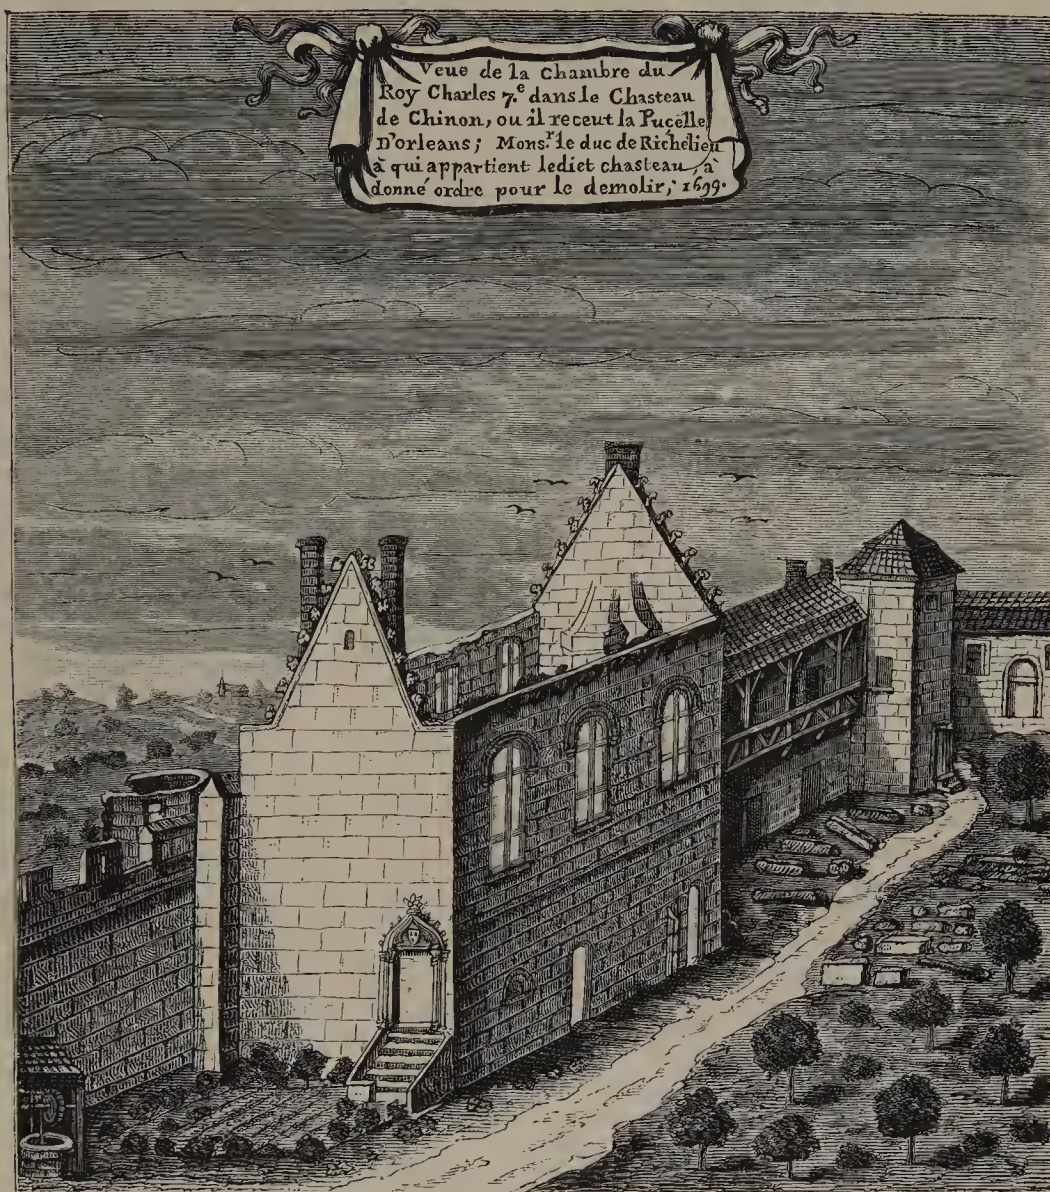 Veue de la Chambre du
Roy Charles 7.e dans le Chasteau
de Chinon, ou il receut la Pucelle
D'orleans; Monsr. le duc de Richelieu
à qui appartient lediet chasteau, à
donné ordre pour le demolir, 1699.